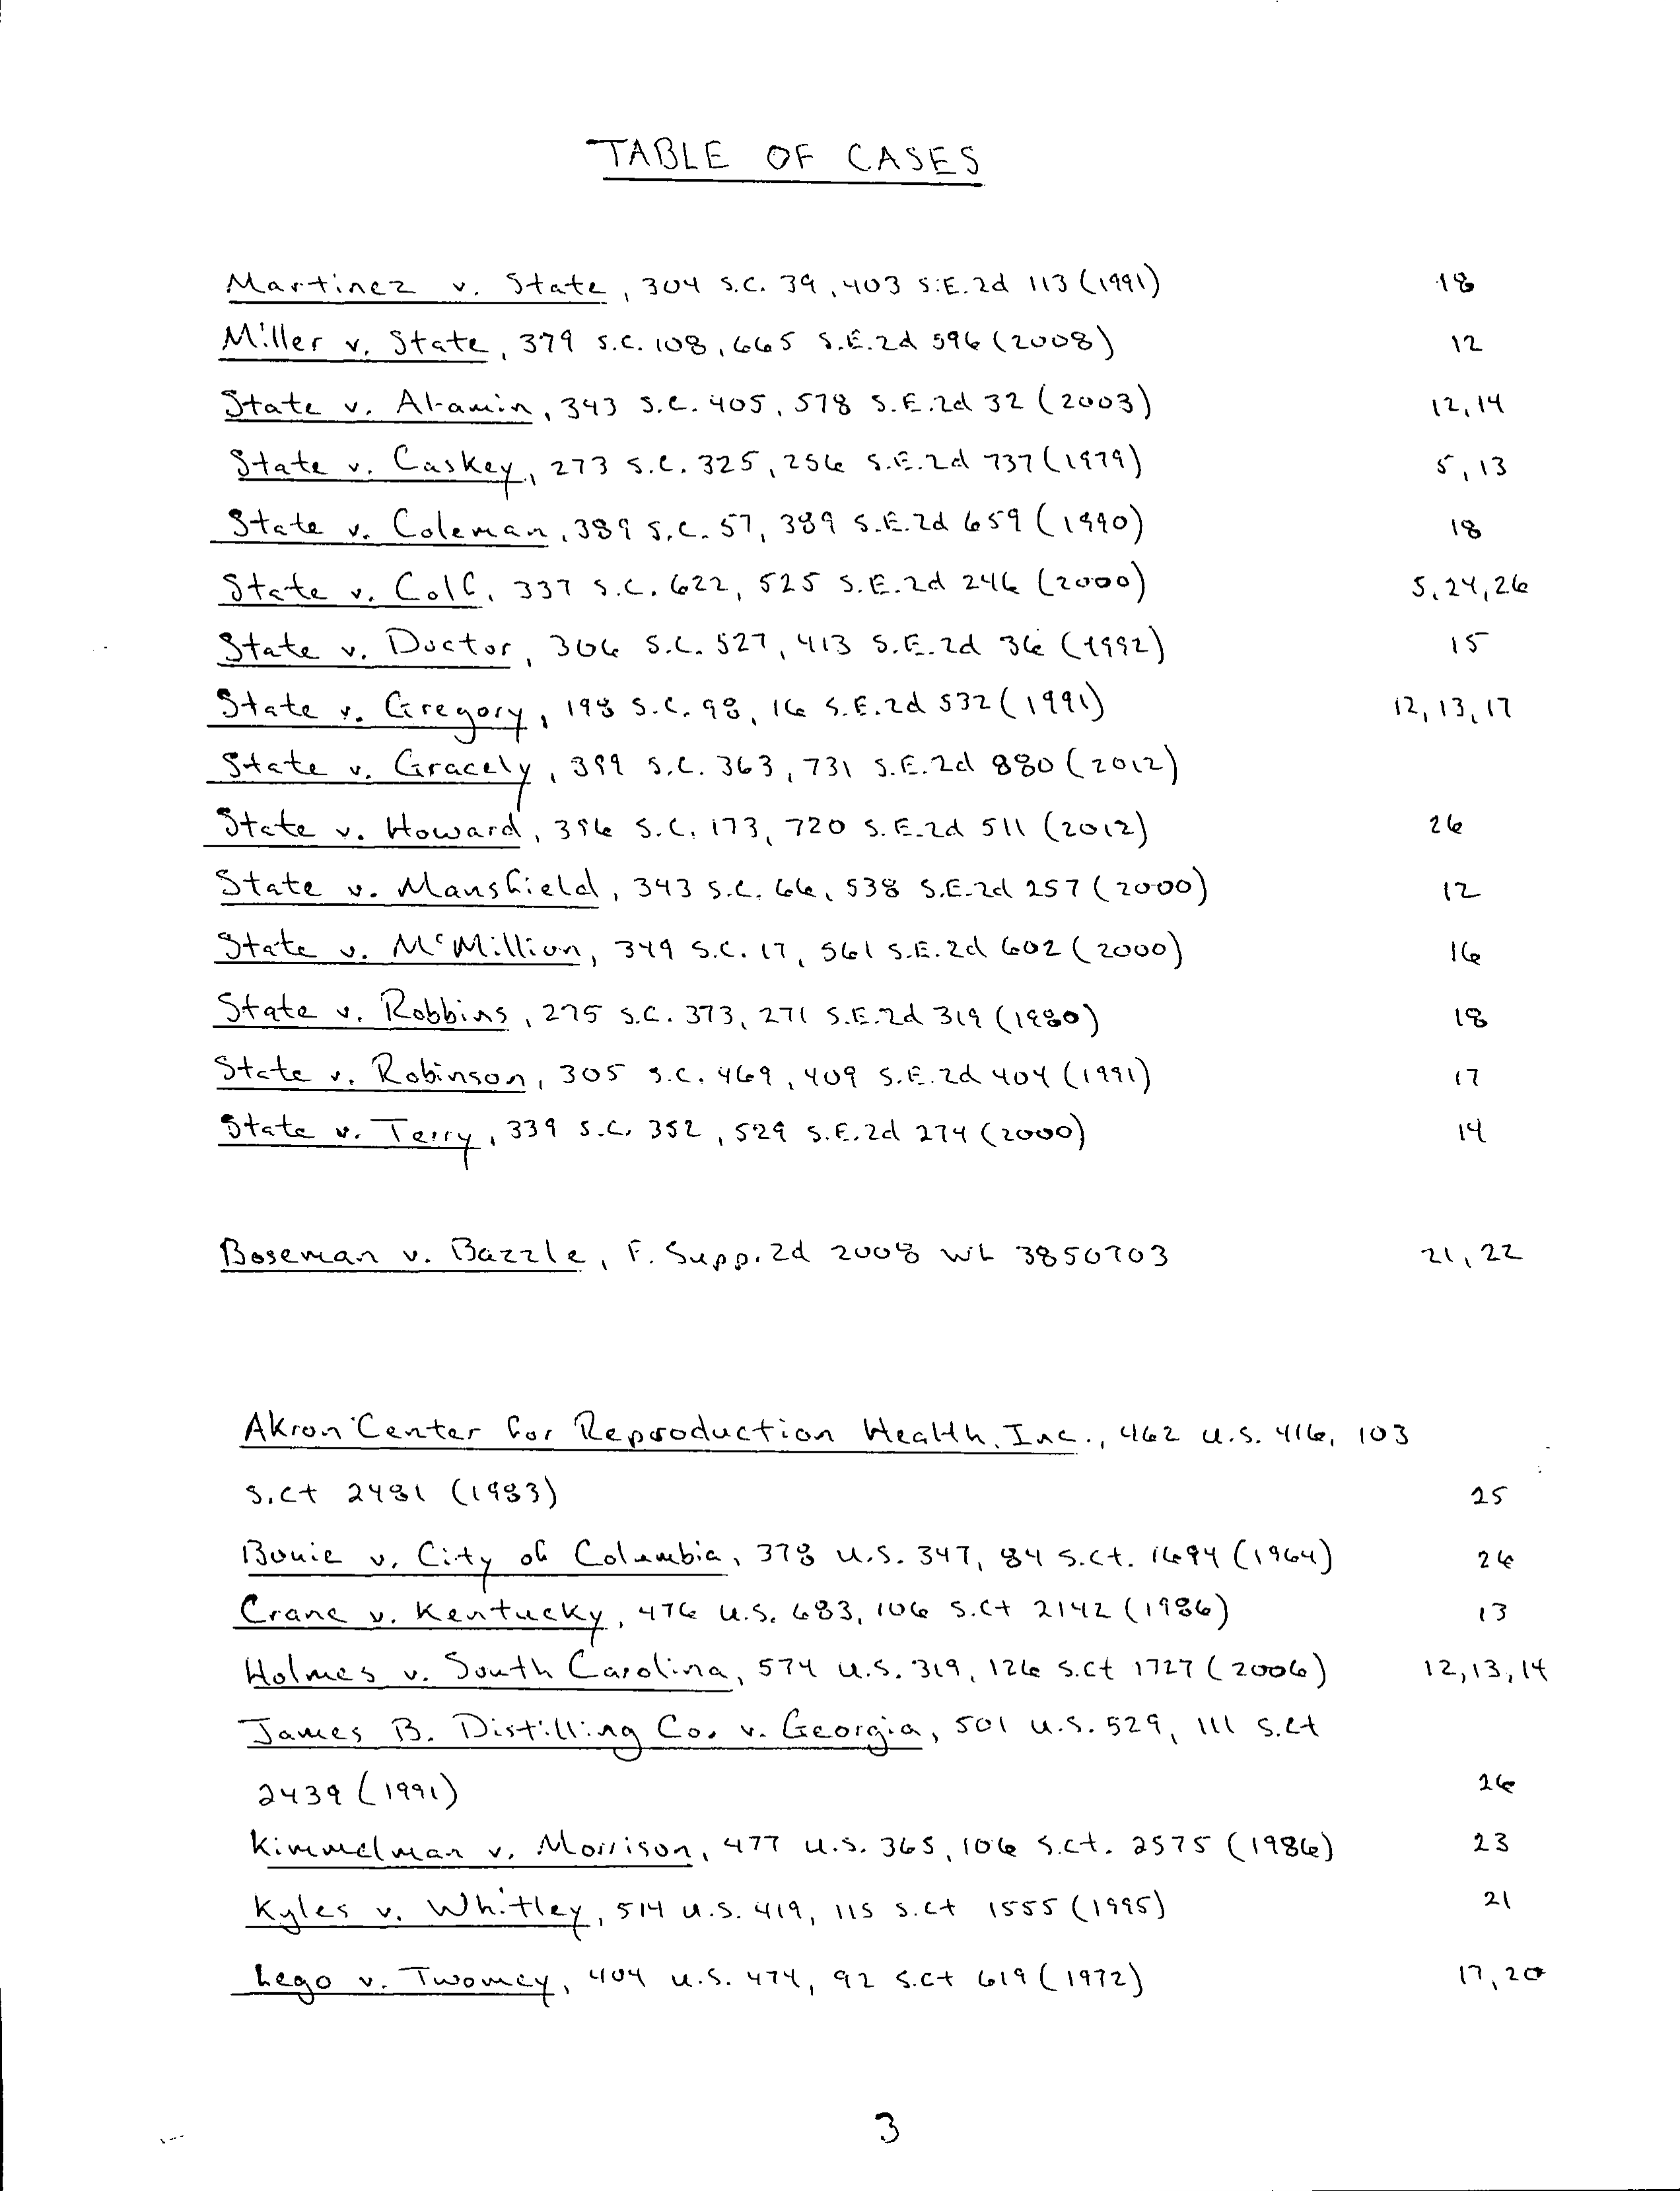 TABLE OF CASES
Martinez v. State, 304 S.C. 39, 403 S.E.2d 113 (1991) 18
Miller v. State, 379 S.C. 108, 665 S.E.2d 596 (2008) 12
State v. Al-amin, 343 S.C. 405, 578 S.E.2d 32 (2003) 12, 14
State v. Caskey, 273 S.C. 325, 256 S.E.2d 737 (1979) 5, 13
State v. Coleman, 389 S.C. 57, 389 S.E.2d 659 (1990) 18
State v. Colf, 337 S.C. 622, 525 S.E.2d 246 (2000) 5, 24, 26
State v. Doctor, 306 S.C. 527, 413 S.E.2d 36 (1992) 15
State v. Gregory, 198 S.C. 98, 16 S.E.2d 532 (1991) 12, 13, 17
State v. Gracely, 399 S.C. 363, 731 S.E.2d 880 (2012)
State v. Howard, 396 S.C. 173, 720 S.E.2d 511 (2012) 26
State v. Mansfield, 343 S.C. 66, 538 S.E.2d 257 (2000) 12
State v. McMillion, 349 S.C. 17, 561 S.E.2d 602 (2000) 16
State v. Robbins, 275 S.C. 373, 271 S.E.2d 319 (1980) 18
State v. Robinson, 305 S.C. 469, 409 S.E.2d 404 (1991) 17
State v. Terry, 339 S.C. 352, 529 S.E.2d 274 (2000) 14
Boseman v. Bazzle, F. Supp. 2d 2008 WL 3850703 21, 22
Akron Center for Reproduction Health, Inc., 462 U.S. 416, 103
S.Ct 2481 (1983) 25
Bouie v. City of Columbia, 378 U.S. 347, 84 S.Ct. 1694 (1964) 26
Crane v. Kentucky, 476 U.S. 683, 106 S.Ct 2142 (1986) 13
Holmes v. South Carolina, 574 U.S. 319, 126 S.Ct 1727 (2006) 12, 13, 14
James B. Distilling Co. v. Georgia, 501 U.S. 529, 111 S.Ct
2439 (1991) 26
Kimmelman v. Morrison, 477 U.S. 365, 106 S.Ct. 2575 (1986) 23
Kyles v. Whitley, 514 U.S. 419, 115 S.Ct 1555 (1995) 21
Lego v. Twomey, 404 U.S. 474, 92 S.Ct 619 (1972) 17, 20
3